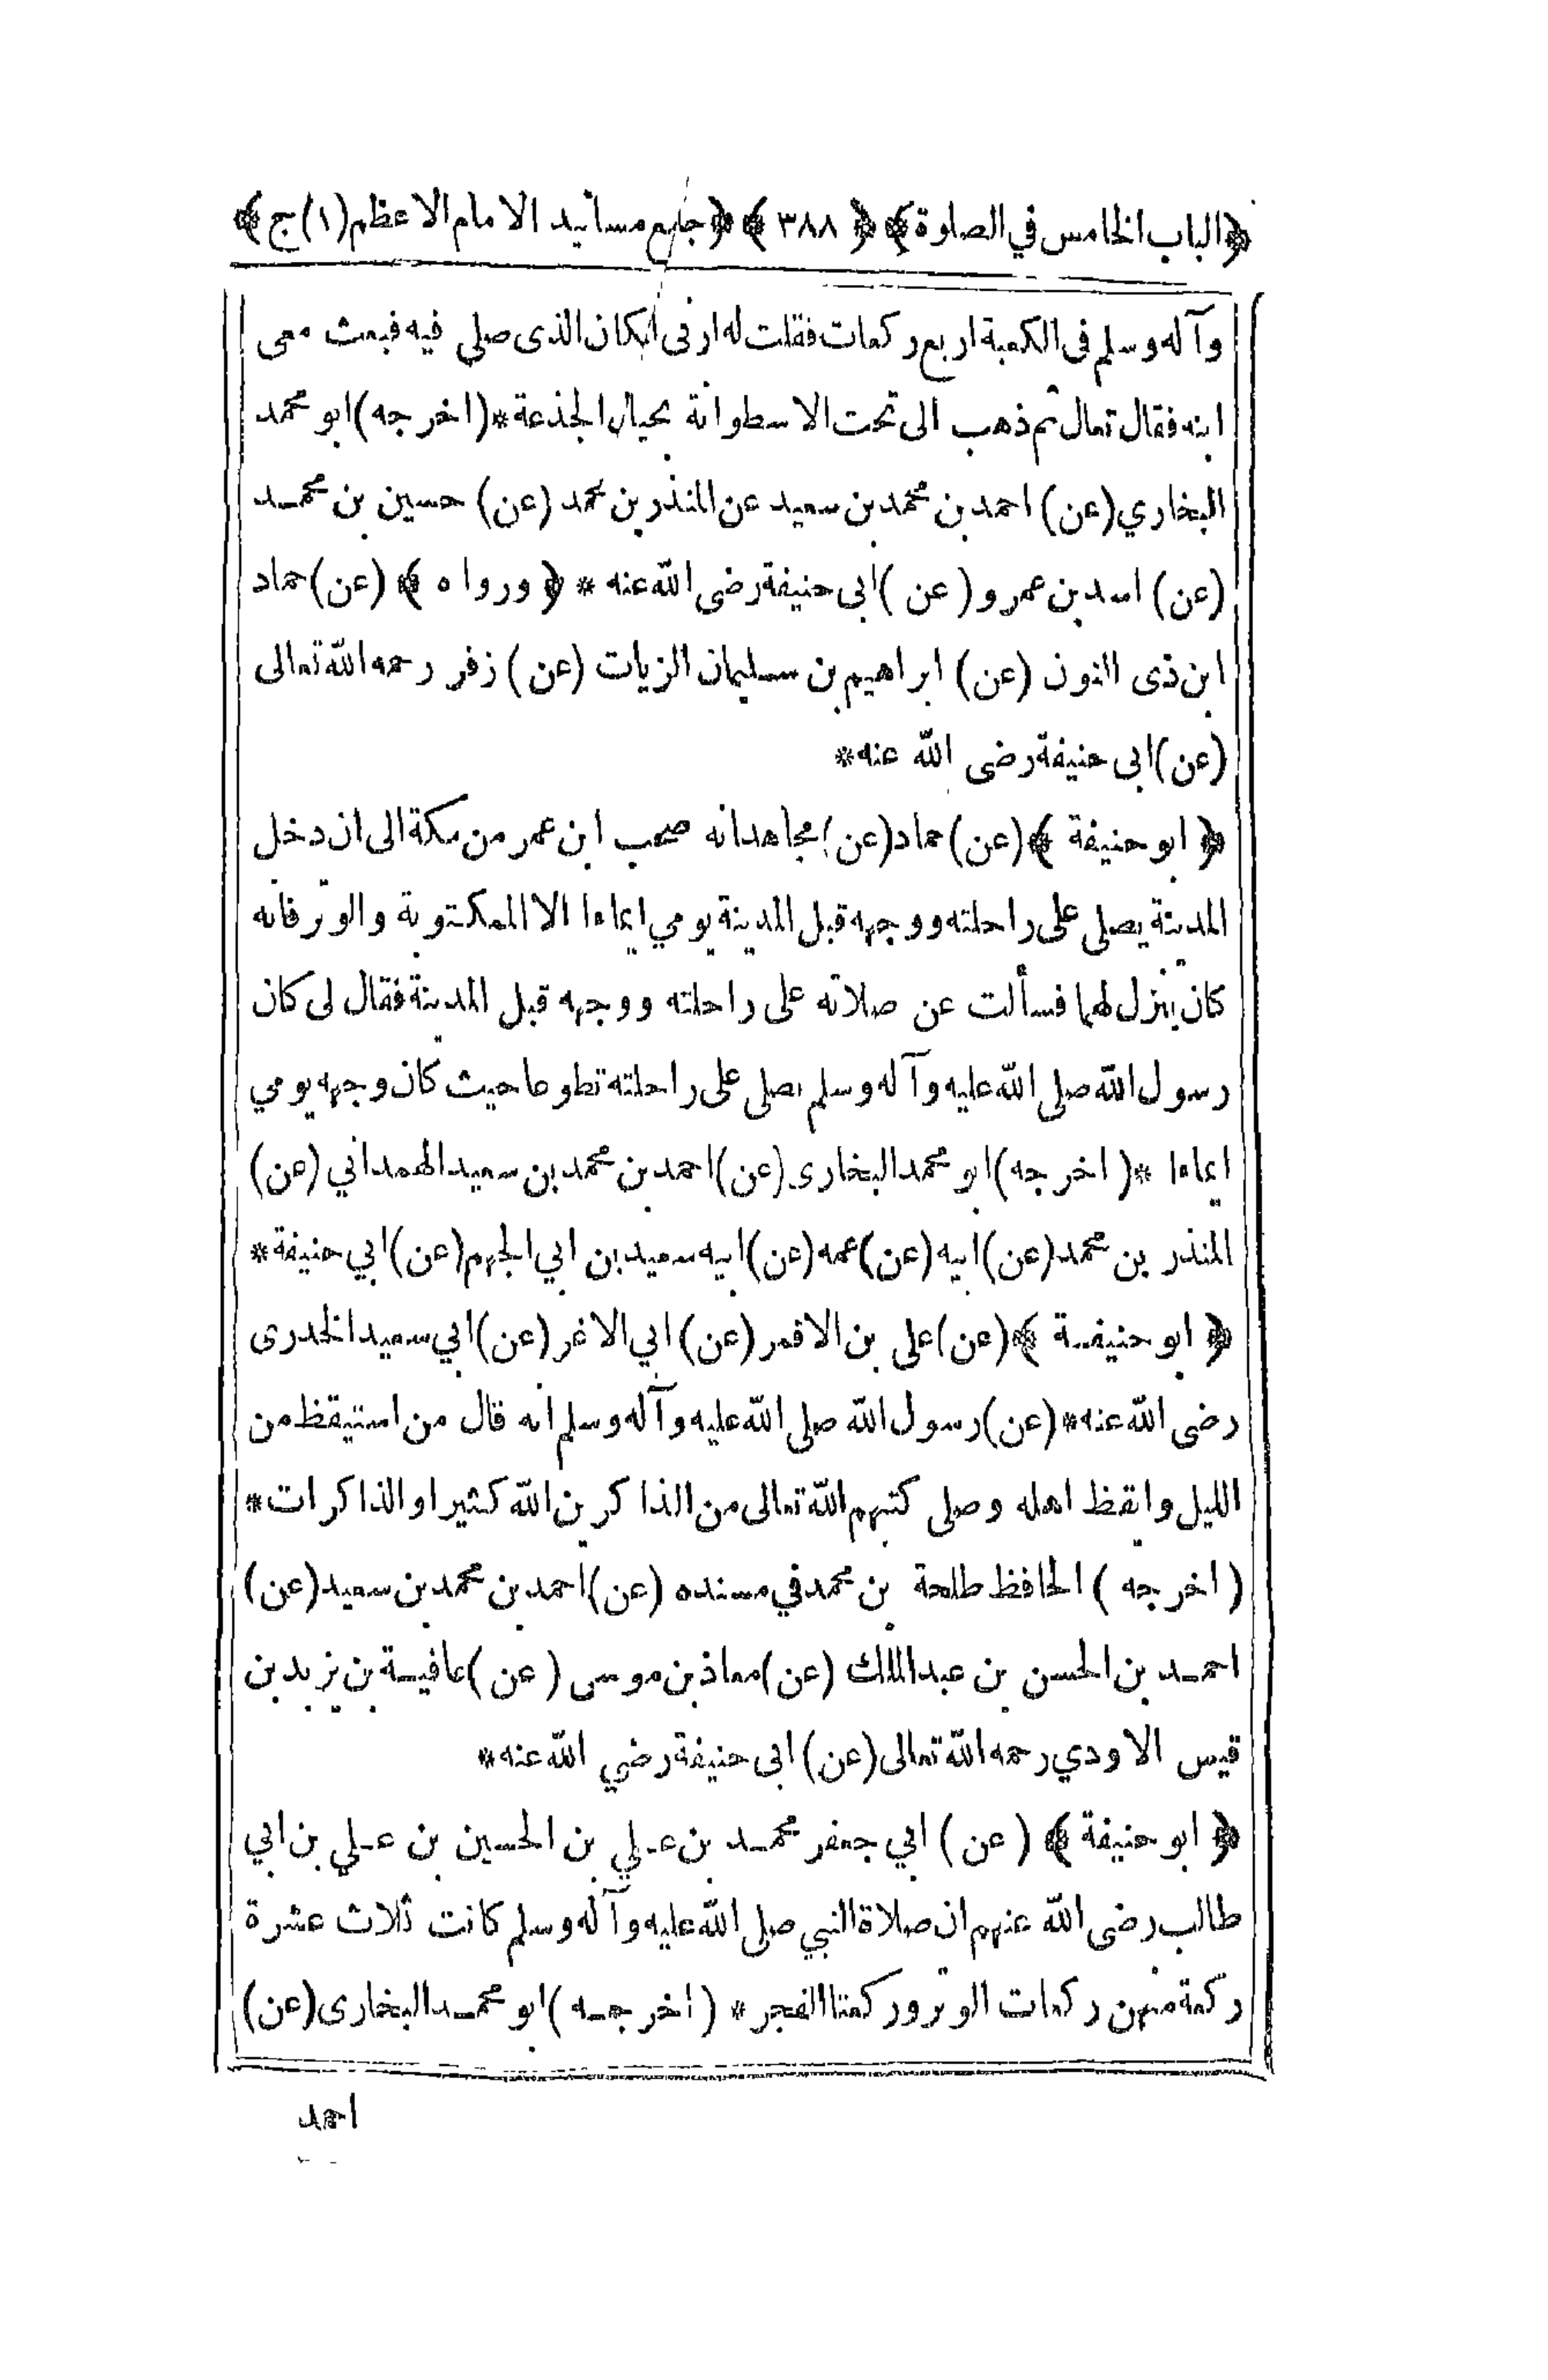 ﴿الباب الخامس في الصلوة﴾ ﴿ ٣٨٨ ﴾ ﴿جامع مسانيد الامام الاعظم (١) ج﴾
وآله وسلم فى الكعبة اربع ركعات فقلت له ارنى المكان الذى صلى فيه فبعث معى
ابنه فقال تعال ثم ذهب الى تحت الاسطوانة بحيال الجذعة * (اخرجه) ابو محمد
البخاري (عن) احمد بن محمد بن سعيد عن المنذر بن محمد (عن) حسين بن محمد
(عن) اسد بن عمرو (عن) ابى حنيفة رضى الله عنه * ﴿ ورواه ﴾ (عن) حماد
ابن ذى النون (عن) ابراهيم بن سليمان الزيات (عن) زفر رحمه الله تعالى
(عن) ابى حنيفة رضى الله عنه *
﴿ ابو حنيفة ﴾ (عن) حماد (عن) مجاهد انه صحب ابن عمر من مكة الى ان دخل
المدينة يصلى على راحلته ووجهه قبل المدينة يومي ايماءا الا المكتوبة والوتر فانه
كان ينزل لهما فسألت عن صلاته على راحلته ووجهه قبل المدينة فقال لى كان
رسول الله صلى الله عليه وآله وسلم يصلى على راحلته تطوعا حيث كان وجهه يومي
ايماءا * (اخرجه) ابو محمد البخارى (عن) احمد بن محمد بن سعيد الهمداني (عن)
المنذر بن محمد (عن) ابيه (عن) عمه (عن) ابيه سعيد بن ابي الجهم (عن) ابي حنيفة *
﴿ ابو حنيفة ﴾ (عن) على بن الاقمر (عن) ابي الاغر (عن) ابي سعيد الخدرى
رضى الله عنه * (عن) رسول الله صلى الله عليه وآله وسلم انه قال من استيقظ من
الليل وايقظ اهله وصلى كتبهم الله تعالى من الذاكرين الله كثيرا والذاكرات *
(اخرجه) الحافظ طلحة بن محمد في مسنده (عن) احمد بن محمد بن سعيد (عن)
احمد بن الحسن بن عبد الملك (عن) معاذ بن موسى (عن) عافية بن يزيد بن
قيس الاودي رحمه الله تعالى (عن) ابى حنيفة رضي الله عنه *
﴿ ابو حنيفة ﴾ (عن) ابي جعفر محمد بن علي بن الحسين بن علي بن ابي
طالب رضى الله عنهم ان صلاة النبي صلى الله عليه وآله وسلم كانت ثلاث عشرة
ركعة منهن ركعات الوتر وركعتا الفجر * (اخرجه) ابو محمد البخارى (عن)
احمد